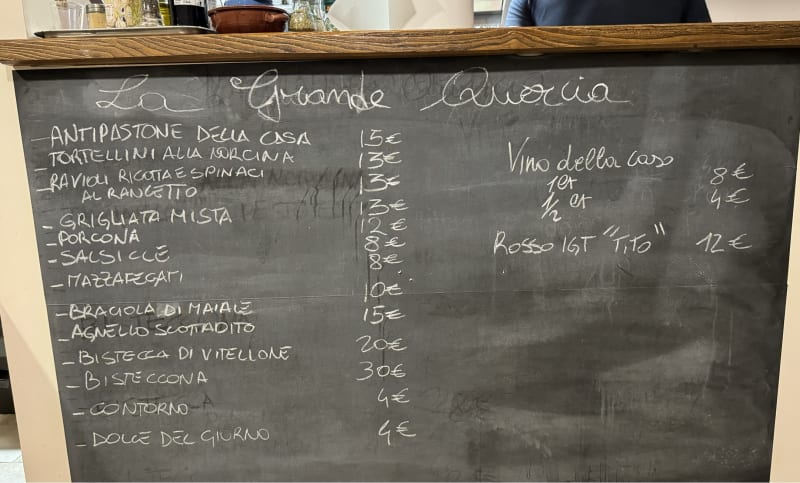 La Grande Quercia
- ANTIPASTONE DELLA CASA 15€
- TORTELLINI ALLA NORCINA 13€
- RAVIOLI RICOTTA E SPINACI 13€
AL RANCETTO
- GRIGLIATA MISTA 13€
- PORCONA 12€
- SALSICCE 8€
- MAZZAFEGATI 8€
- BRACIOLA DI MAIALE 10€
- AGNELLO SCOTTADITO 15€
- BISTECCA DI VITELLONE 20€
- BISTECCONA 30€
- CONTORNO 4€
- DOLCE DEL GIORNO 4€
Vino della casa
1 lt 8€
1/2 lt 4€
Rosso IGT "TiTo" 12€